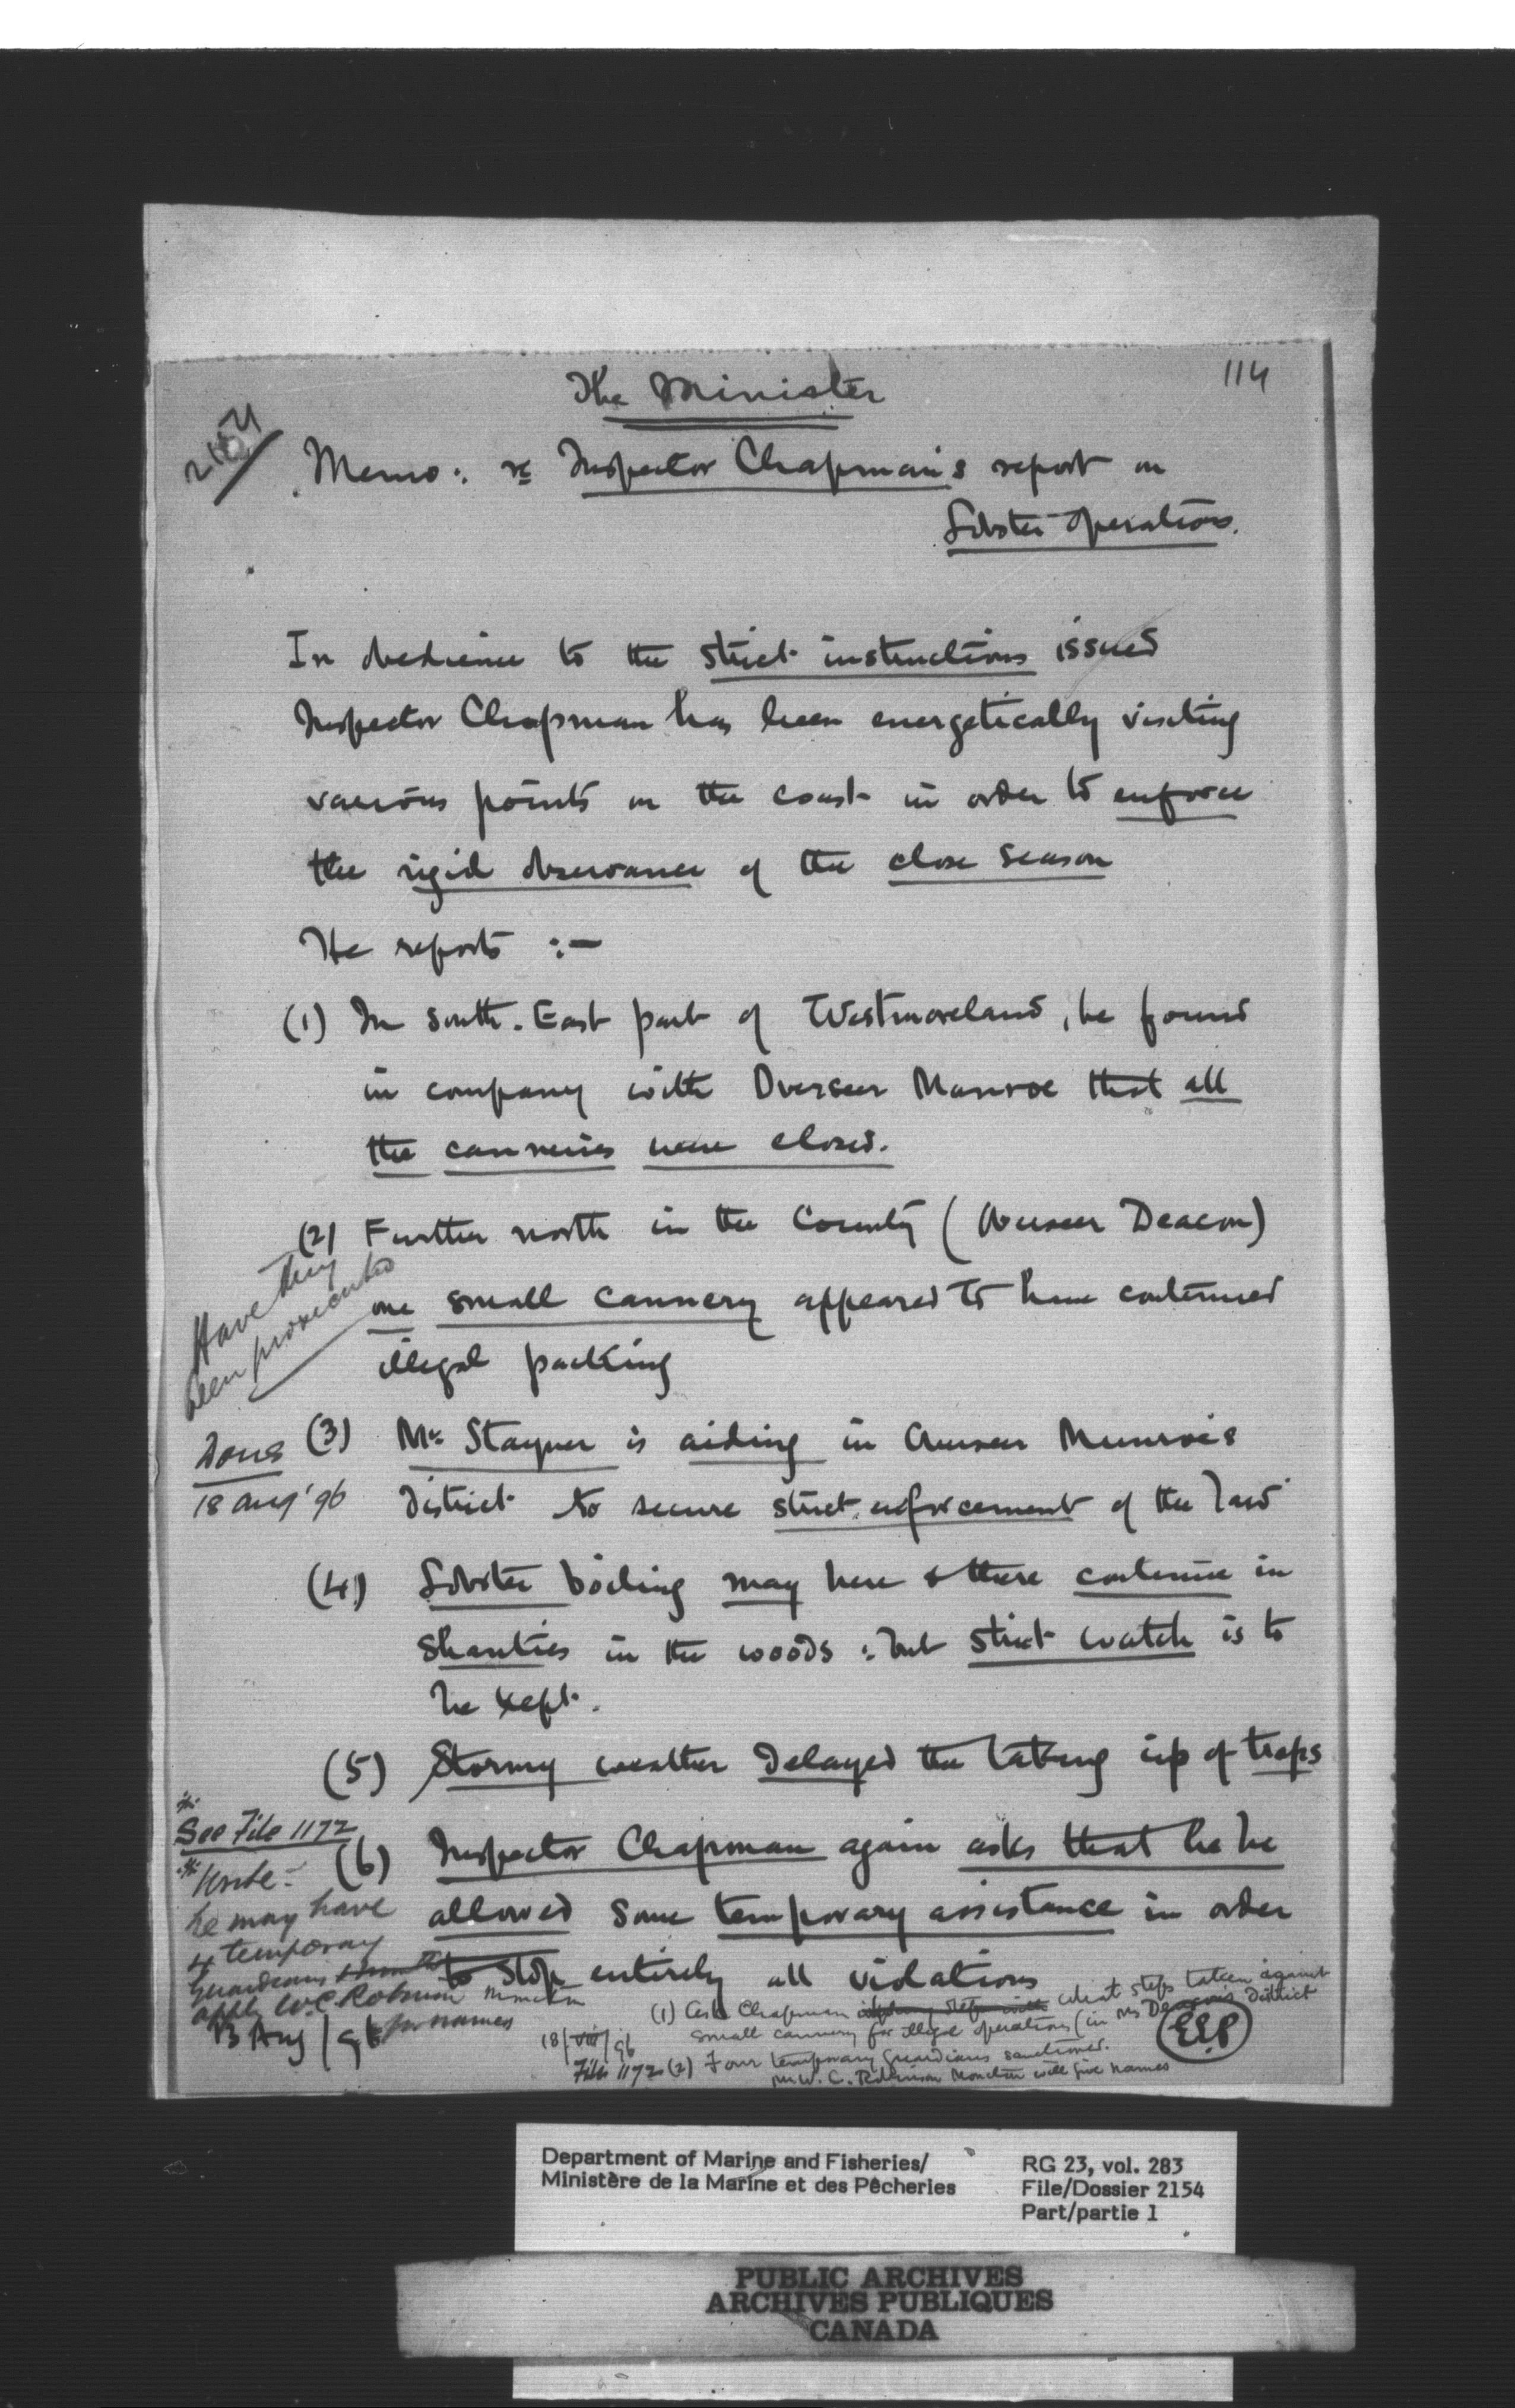 114
The Minister
2154
Memo: re Inspector Chapman's report on
Lobster Operations.
In obedience to the strict instructions issued
Inspector Chapman has been energetically visiting
various points on the coast in order to enforce
the rigid observance of the close season
He reports :—
(1) In South. East part of Westmoreland, he found
in company with Overseer Munroe that all
the canneries were closed.
(2) Further north in the County (Overseer Deacon)
one small cannery appeared to have continued
illegal packing
Have they
been prosecuted
(3) Mr. Stayner is aiding in Overseer Munroe's
District to secure strict enforcement of the law
Done
18 Aug '96
(4) Lobster boiling may here & there continue in
shanties in the woods : but strict watch is to
be kept.
(5) Stormy weather delayed the taking up of traps
(6) Inspector Chapman again asks that he be
allowed some temporary assistance in order
to stop entirely all violations
See File 1172
Write -
he may have
4 temporary
Guardians
apply W.C. Robinson Moncton
for names
13 Aug / 96
18/VIII/96
(1) Ask Chapman what steps taken against
small cannery for illegal operations (in Mr Deacon's District
EEP
File 1172 (2) Four temporary guardians sanctioned.
Mr W. C. Robinson Moncton will give names
Department of Marine and Fisheries/
Ministère de la Marine et des Pêcheries
RG 23, vol. 283
File/Dossier 2154
Part/partie 1
PUBLIC ARCHIVES
ARCHIVES PUBLIQUES
CANADA